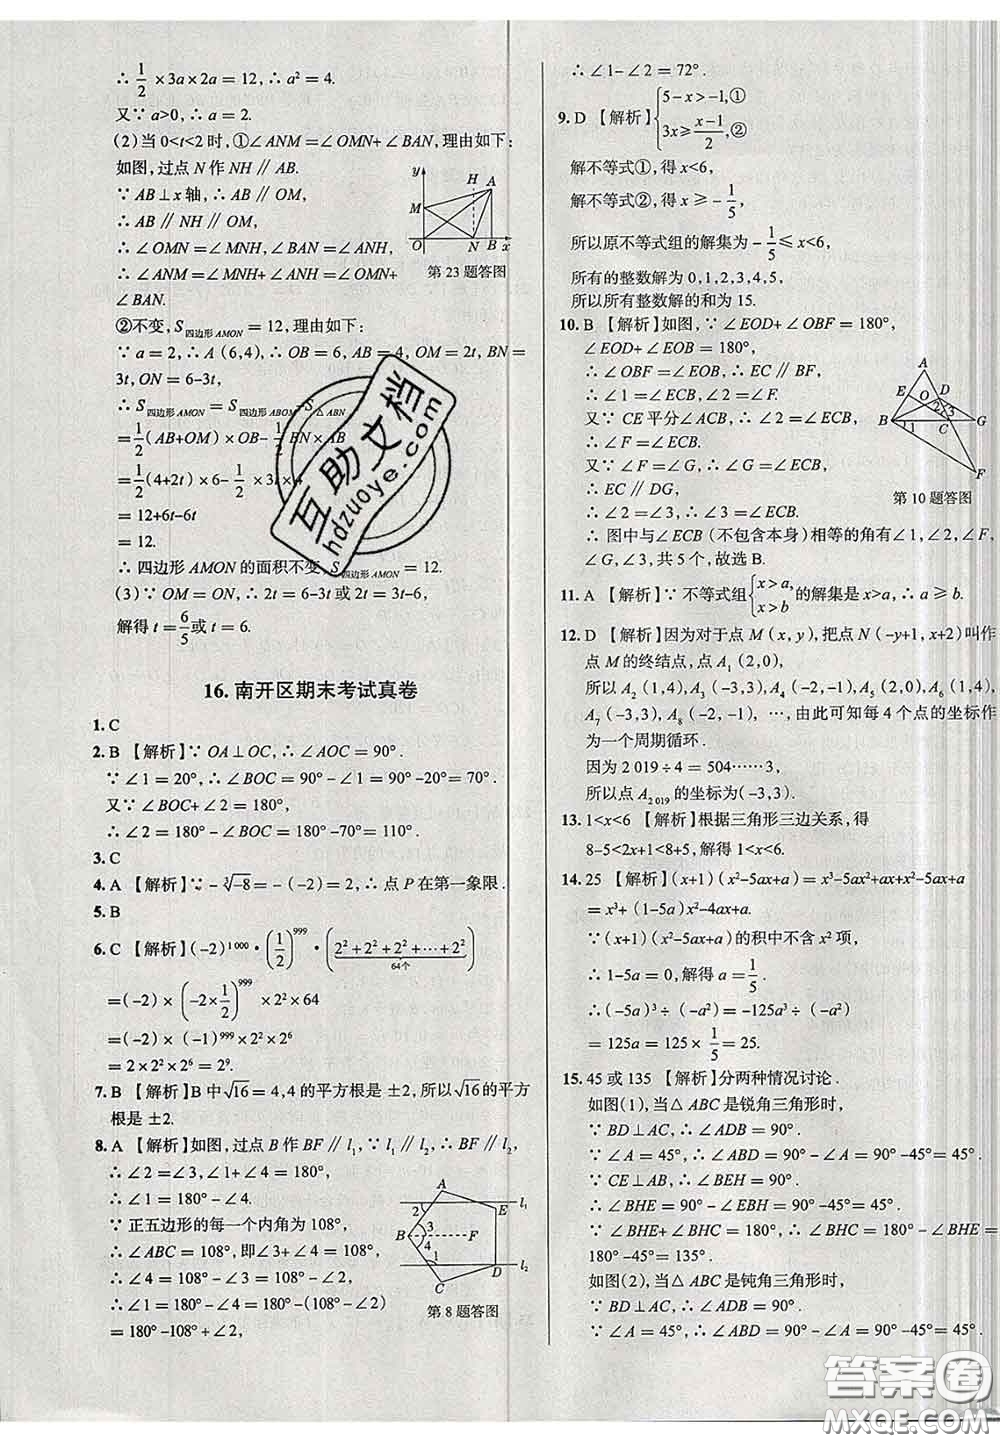 ∴ 1/2 ×3a×2a=12,∴a²=4.
又∵a>0,∴a=2.
(2)当0<t<2时,①∠ANM=∠OMN+∠BAN,理由如下:
如图,过点N作NH∥AB.
∵AB⊥x轴,∴AB∥OM,
∴AB∥NH∥OM,
∴∠OMN=∠MNH,∠BAN=∠ANH,
∴∠ANM=∠MNH+∠ANH=∠OMN+
∠BAN.
y H A
M
O N B x
第23题答图
②不变,S四边形AMON=12,理由如下:
∵a=2,∴A(6,4),∴OB=6,AB=4,OM=2t,BN=
3t,ON=6-3t,
∴S四边形AMON=S四边形ABOM-S△ABN
=1/2(AB+OM)×OB-1/2 BN×AB
=1/2(4+2t)×6-1/2 ×3t×4
=12+6t-6t
=12.
∴四边形AMON的面积不变,S四边形AMON=12.
(3)∵OM=ON,∴2t=6-3t或2t=3t-6,
解得t=6/5或t=6.
16.南开区期末考试真卷
1.C
2.B 【解析】∵OA⊥OC,∴∠AOC=90°.
∵∠1=20°,∴∠BOC=90°-20°=70°.
又∵∠BOC+∠2=180°,
∴∠2=180°-∠BOC=180°-70°=110°.
3.C
4.A 【解析】∵-∛-8=-(-2)=2,∴点P在第一象限.
5.B
6.C 【解析】(-2)¹⁰⁰⁰·(1/2)⁹⁹⁹·(2²+2²+2²+…+2²)
64个
=(-2)×(-2×1/2)⁹⁹⁹×2²×64
=(-2)×(-1)⁹⁹⁹×2²×2⁶
=2×2²×2⁶=2⁹.
7.B 【解析】B中√16=4,4的平方根是±2,所以√16的平方
根是±2.
8.A 【解析】如图,过点B作BF∥l₁,∵l₁∥l₂,∴BF∥l₂,
∴∠2=∠3,∠1+∠4=180°,
∴∠1=180°-∠4.
∵正五边形的每一个内角为108°,
∴∠ABC=∠3+∠4=108°,
∴∠4=108°-∠3=108°-∠2,
∴∠1=180°-∠4=180°-(108°-∠2)
=180°-108°+∠2,
A
2 E l₁
B 3 F
4
1 D l₂
C
第8题答图
∴∠1-∠2=72°.
9.D 【解析】{5-x>-1,①
3x≥(x-1)/2,②
解不等式①,得x<6,
解不等式②,得x≥-1/5,
所以原不等式组的解集为-1/5≤x<6,
所有的整数解为0,1,2,3,4,5,
所以所有整数解的和为15.
10.B 【解析】如图,∵∠EOD+∠OBF=180°,
∠EOD+∠EOB=180°,
∴∠OBF=∠EOB,∴EC∥BF,
∴∠1=∠ECB,∠2=∠F.
又∵CE平分∠ACB,∴∠2=∠ECB,
∴∠F=∠ECB.
又∵∠G=∠F,∴∠G=∠ECB,
∴EC∥DG,
∴∠2=∠3,∴∠3=∠ECB.
∴图中与∠ECB(不包含本身)相等的角有∠1,∠2,∠3,
∠G,∠F,共5个,故选B.
A
E O D
2 3
B 1 C G
F
第10题答图
11.A 【解析】∵不等式组{x>a, x>b 的解集是x>a,∴a≥b.
12.D 【解析】因为对于点M(x,y),把点N(-y+1,x+2)叫作
点M的终结点,点A₁(2,0),
所以A₂(1,4),A₃(-3,3),A₄(-2,-1),A₅(2,0),A₆(1,4),
A₇(-3,3),A₈(-2,-1),…,由此可知每4个点的坐标作
为一个周期循环.
因为2 019÷4=504……3,
所以点A₂₀₁₉的坐标为(-3,3).
13.1<x<6 【解析】根据三角形三边关系,得
8-5<2x+1<8+5,解得1<x<6.
14.25 【解析】(x+1)(x²-5ax+a)=x³-5ax²+ax+x²-5ax+a
=x³+(1-5a)x²-4ax+a.
∵(x+1)(x²-5ax+a)的积中不含x²项,
∴1-5a=0,解得a=1/5.
∴(-5a)³÷(-a²)=-125a³÷(-a²)
=125a=125×1/5=25.
15.45或135 【解析】分两种情况讨论.
如图(1),当△ABC是锐角三角形时,
∵BD⊥AC,∴∠ADB=90°.
∵∠A=45°,∴∠ABD=90°-∠A=90°-45°=45°.
∵CE⊥AB,∴∠BEH=90°.
∴∠BHE=90°-∠EBH=90°-45°=45°.
∵∠BHE+∠BHC=180°,∴∠BHC=180°-∠BHE=
180°-45°=135°.
如图(2),当△ABC是钝角三角形时,
∵BD⊥AC,∴∠ADB=90°.
∵∠A=45°,∴∠ABD=90°-∠A=90°-45°=45°.
互助文档
hdzuoye.com
答案圈
MXQE.COM